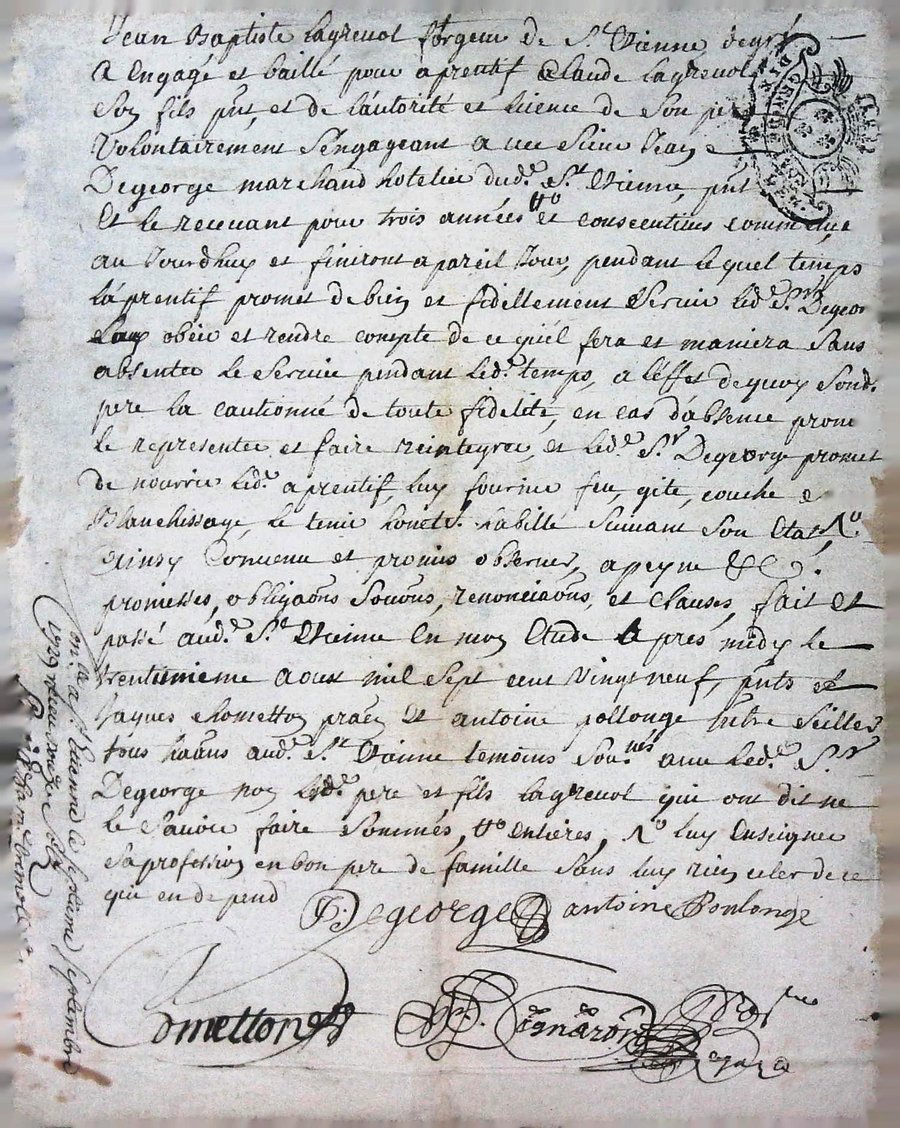 Jean Baptiste lagrevol forgeur de St. Etienne de gré
A Engagé et baillé pour aprentif Claude lagrevol
Son fils pnt, et de lautorité et licence de Son pe
Volontairement Sengageant avec Sieur Jean
Degeorge marchand hotelier dud. St. Etienne, pnt
Et le recevant pour trois années tto et consecutives
au Jourdhuy et finiront a pareil Jour, pendant lequel temps
laprentif promet de bien et fidellement Servir led. Sr. Degeor
Luy obeir et rendre compte de ce quiél fera et maniera Sans
absenter le Service pendant led. temps, a léffet dequoy Sond.
pere la cautionné de toute fidelité, en cas dabsence prome
le representer et faire reintegrer, et led. Sr. Degeorge promet
de nourrir led. aprentif, luy fournir feu, gite, couche &
Blanchissage, le tenir habillé Suivant Son Etat, No
Ainsy Convenu et promis observer, a peyne &c.
promesses, obligaons Souons, renonciaons, et Clauses, fait Et
passé aud. St. Etienne En mon Etude Apres midy le
trentunieme aoust mil Sept cent vingt neuf, pnts
Jaques Chometton praen Et antoine pollonge
tous haans aud. St. Etienne temoins Sou.nés avec led. Sr.
Degeorge non led. pere et fils lagrevol qui ont dit ne
le Savoir faire Sommés, tto entières, No luy Enseigner
Sa profession en bon pere de famille Sans luy rien celer de ce
qui en depend
Degeorge antoine Poulonge
Ometton
on.le a St. Etienne le Septieme Septembre
1729